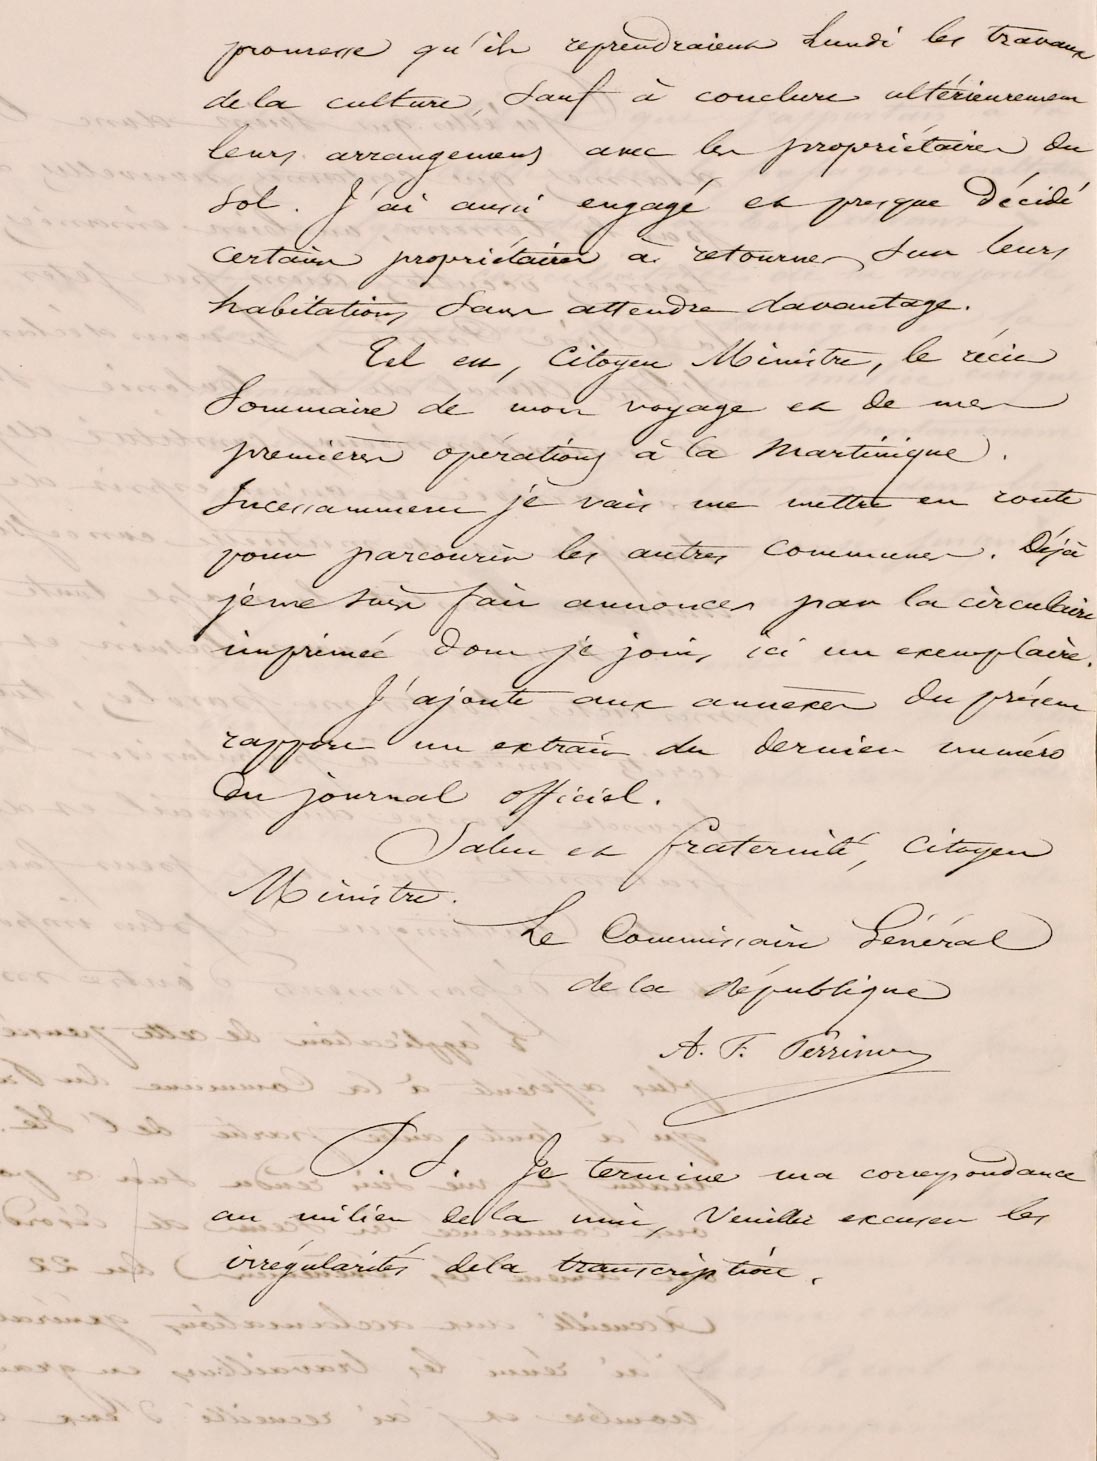 promesse qu'ils reprendraient Lundi les travaux
de la culture, sauf à conclure ultérieurement
leurs arrangemens avec les propriétaires du
sol. J'ai aussi engagé et presque décidé
certains propriétaires à retourner sur leurs
habitations sans attendre davantage.
Tel est, Citoyen Ministre, le récit
Sommaire de mon voyage et de mes
premières opérations à la Martinique.
Incessamment je vais me mettre en route
pour parcourir les autres communes. Déjà
je me suis fait annoncer par la circulaire
imprimée dont je joins ici un exemplaire.
J'ajoute aux annexes du présent
rapport un extrait du dernier numéro
du journal officiel.
Salut et fraternité, Citoyen
Ministre.
Le Commissaire Général
de la République
A. F. Perrinon
P. S. Je termine ma correspondance
au milieu de la nuit, Veuillez excuser les
irrégularités de la transcription.